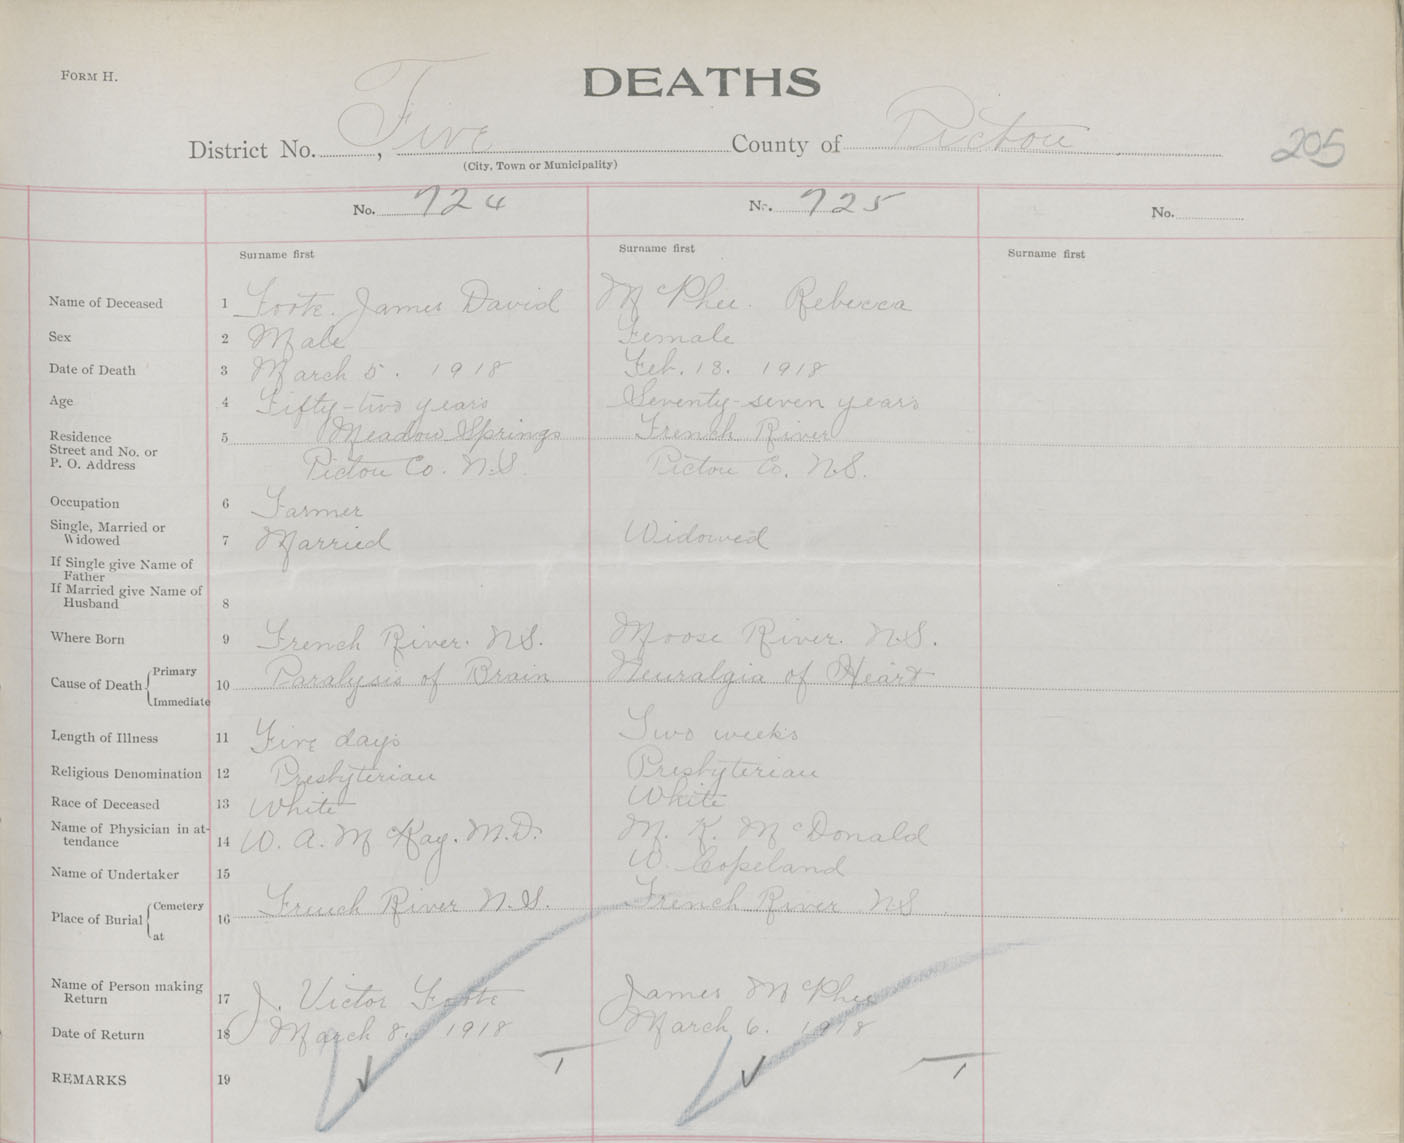 FORM H.
DEATHS
District No. , Five County of Pictou 205
(City, Town or Municipality)
No. 724 No. 725 No.
Surname first Surname first Surname first
Name of Deceased 1 Foote. James David McPhee. Rebecca
Sex 2 Male Female
Date of Death 3 March 5. 1918 Feb. 18. 1918
Age 4 Fifty-two years Seventy-seven years
Residence 5 Meadow Springs French River
Street and No. or
P. O. Address Pictou Co. N.S. Pictou Co. N.S.
Occupation 6 Farmer
Single, Married or
Widowed 7 Married Widowed
If Single give Name of
Father
If Married give Name of
Husband 8
Where Born 9 French River. N.S. Moose River. N.S.
Primary
Cause of Death 10 Paralysis of Brain Neuralgia of Heart
Immediate
Length of Illness 11 Five days Two weeks
Religious Denomination 12 Presbyterian Presbyterian
Race of Deceased 13 White White
Name of Physician in at-
tendance 14 W. A. McKay. M.D. M. K. McDonald
Name of Undertaker 15 W. Copeland
Cemetery
Place of Burial 16 French River N.S. French River N.S.
at
Name of Person making
Return 17 J. Victor Foote James McPhee
Date of Return 18 March 8. 1918 March 6. 1918
REMARKS 19